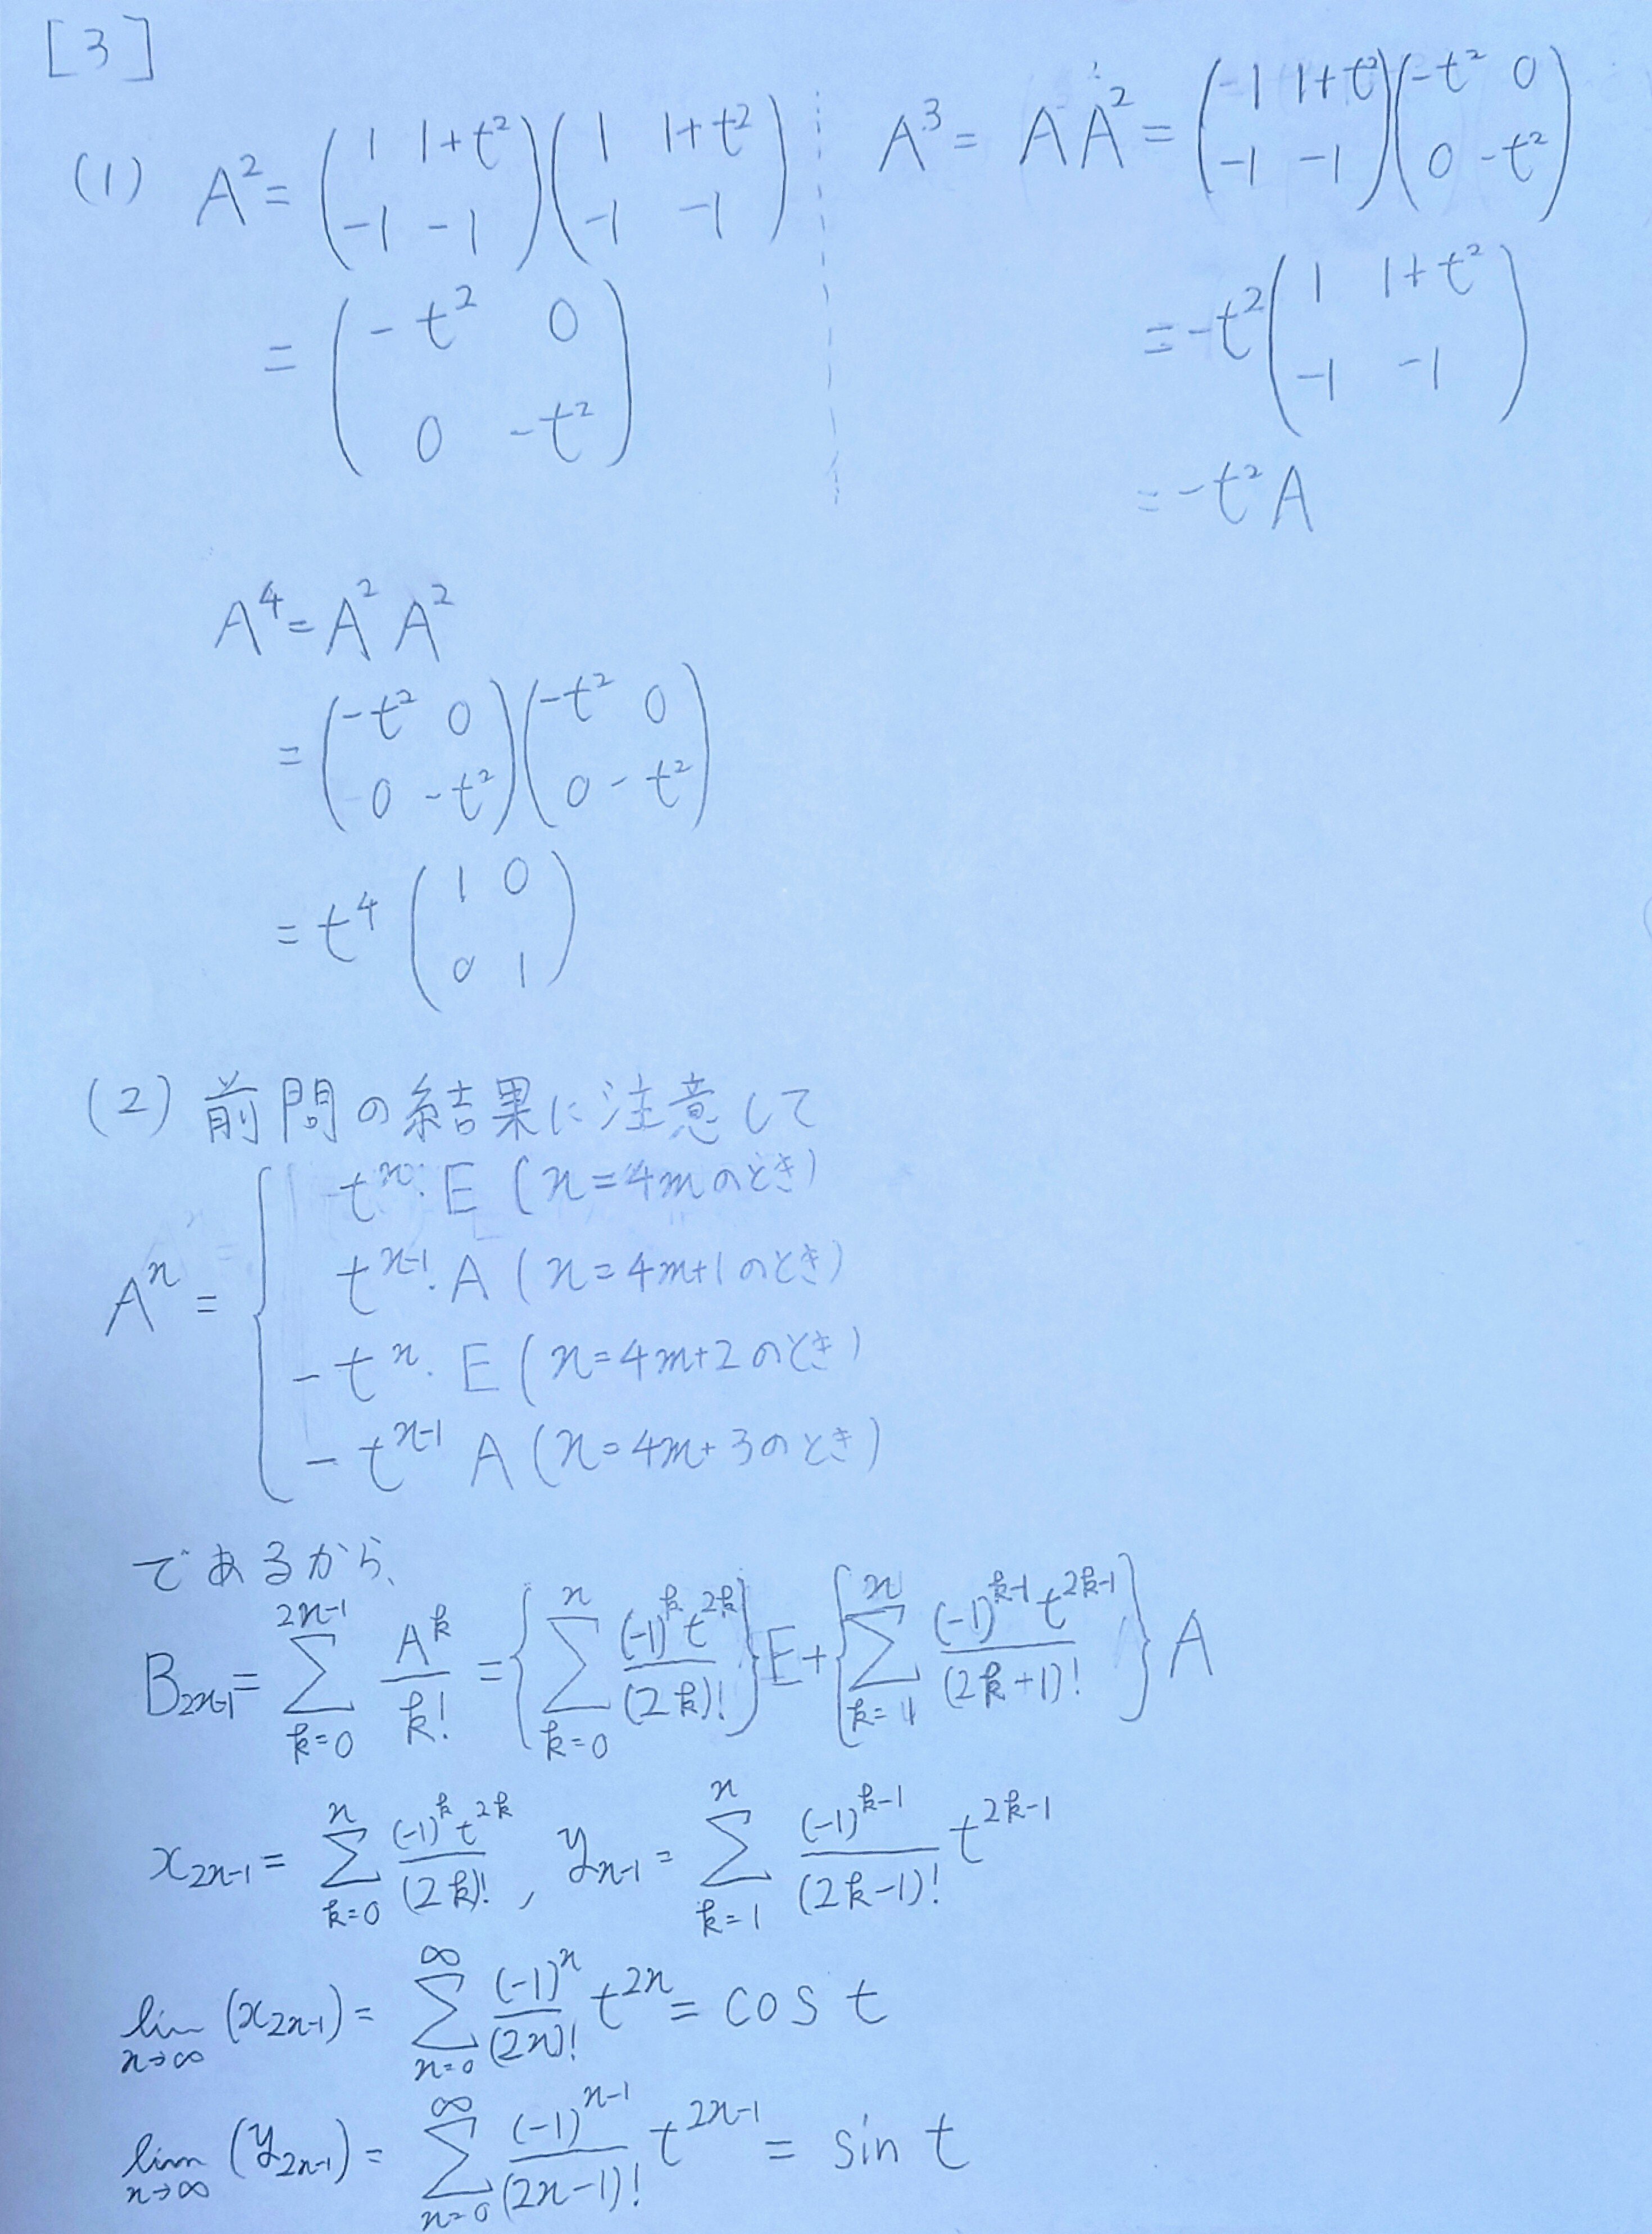 [3]
(1) A² = (1 1+t² ; -1 -1)(1 1+t² ; -1 -1)
= (-t² 0 ; 0 -t²)
A³ = AA² = (-1 1+t² ; -1 -1)(-t² 0 ; 0 -t²)
= -t²(1 1+t² ; -1 -1)
= -t²A
A⁴ = A²A²
= (-t² 0 ; 0 -t²)(-t² 0 ; 0 -t²)
= t⁴(1 0 ; 0 1)
(2) 前問の結果に注意して
Aⁿ = { tⁿ·E (n=4mのとき)
tⁿ⁻¹·A (n=4m+1のとき)
-tⁿ·E (n=4m+2のとき)
-tⁿ⁻¹ A (n=4m+3のとき)
であるから、
B_{2n-1} = Σ_{k=0}^{2n-1} A^k/k! = {Σ_{k=0}^{n} (-1)^k t^{2k}/(2k)!}E + {Σ_{k=1}^{n} (-1)^{k-1} t^{2k-1}/(2k+1)!}A
x_{2n-1} = Σ_{k=0}^{n} (-1)^k t^{2k}/(2k)!, y_{n-1} = Σ_{k=1}^{n} (-1)^{k-1}/(2k-1)! t^{2k-1}
lim_{n→∞} (x_{2n-1}) = Σ_{n=0}^{∞} (-1)^n/(2n)! t^{2n} = cos t
lim_{n→∞} (y_{2n-1}) = Σ_{n=0}^{∞} (-1)^{n-1}/(2n-1)! t^{2n-1} = sin t